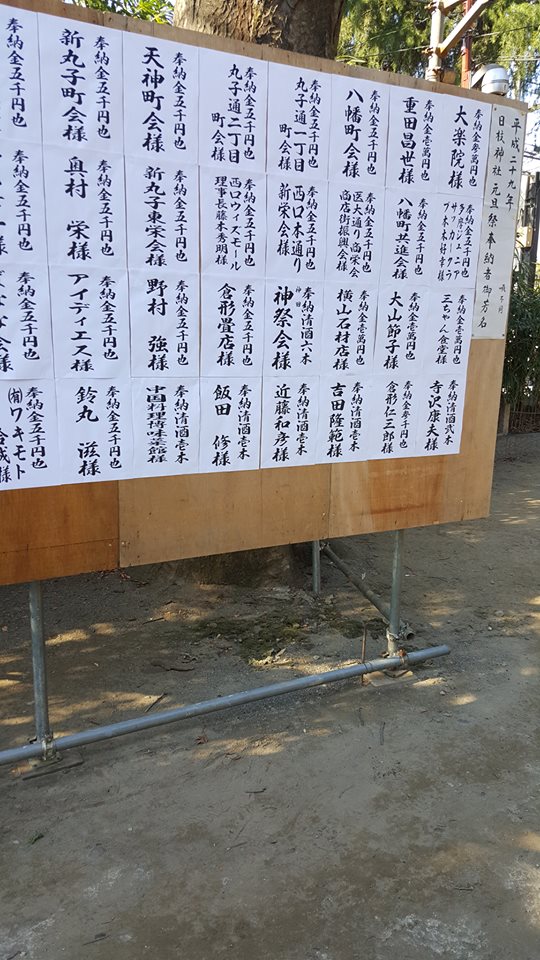 平成二十九年
日枝神社 元旦祭奉納者御芳名
奉納金参萬円也
大楽院様
奉納金壱萬円也
重田昌世様
奉納金五千円也
八幡町会様
奉納金五千円也
丸子通一丁目
町会様
奉納金五千円也
丸子通二丁目
町会様
奉納金五千円也
天神町会様
奉納金五千円也
新丸子町会様
奉納金五千円也
奉納金壱萬円也
多摩ジュニア
奉納金五千円也
八幡町共進会様
奉納金五千円也
医大通り商栄会
商店街振興会様
奉納金五千円也
西口本通り
新栄会様
奉納金五千円也
西口ウィズモール
理事長藤本秀明様
奉納金五千円也
新丸子東栄会様
奉納金五千円也
奥村 栄様
奉納金五千円也
奉納金壱萬円也
三ちゃん食堂様
奉納金壱萬円也
大山節子様
奉納金壱萬円也
横山石材店様
奉納清酒六本
神田
神祭会様
奉納金五千円也
倉形畳店様
奉納金五千円也
野村 強様
奉納金五千円也
アイディエス様
奉納金五千円也
奉納清酒弐本
寺沢康夫様
奉納金参千円也
倉形仁三郎様
奉納清酒壱本
吉田隆範様
奉納清酒壱本
近藤和彦様
奉納清酒壱本
飯田 修様
奉納清酒壱本
奉納金五千円也
鈴丸 滋様
奉納金五千円也
㈲ワキモト